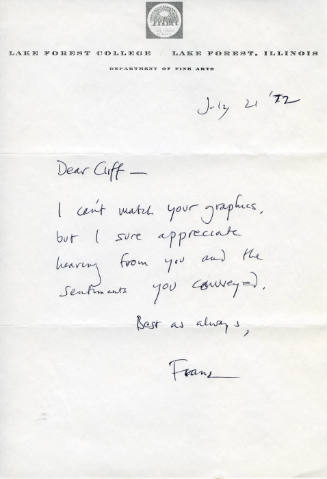 LAKE FOREST COLLEGE LAKE FOREST, ILLINOIS
DEPARTMENT OF FINE ARTS
July 21 '72
Dear Cliff—
I can't match your graphics,
but I sure appreciate
hearing from you and the
sentiments you conveyed.
Best as always,
Franz